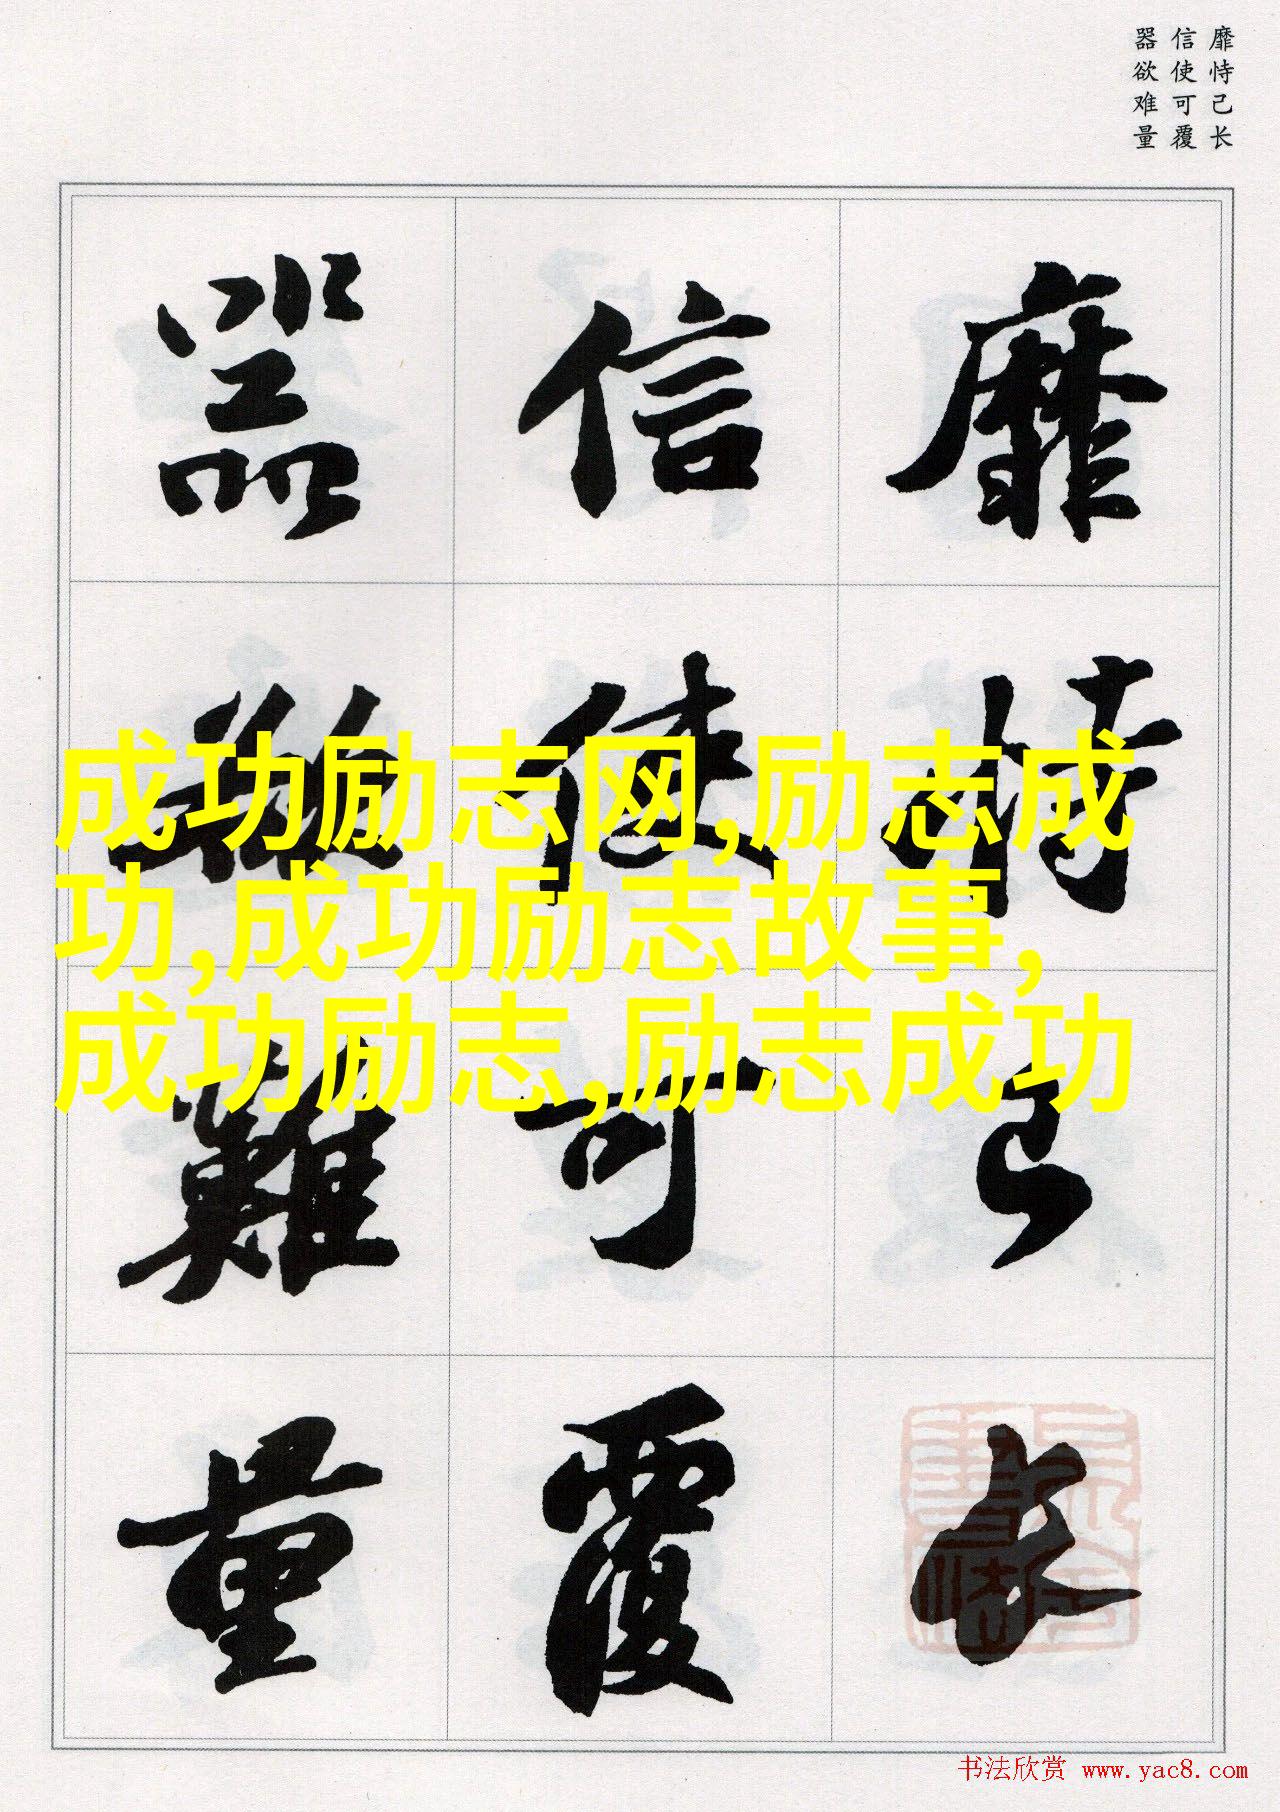 靡恃己长
信使可覆
器欲难量
靡恃己长
信使可覆
器欲難量
成功励志网,励志成
功,成功励志故事,
成功励志,励志成功
书法欣赏 www.yac8.com